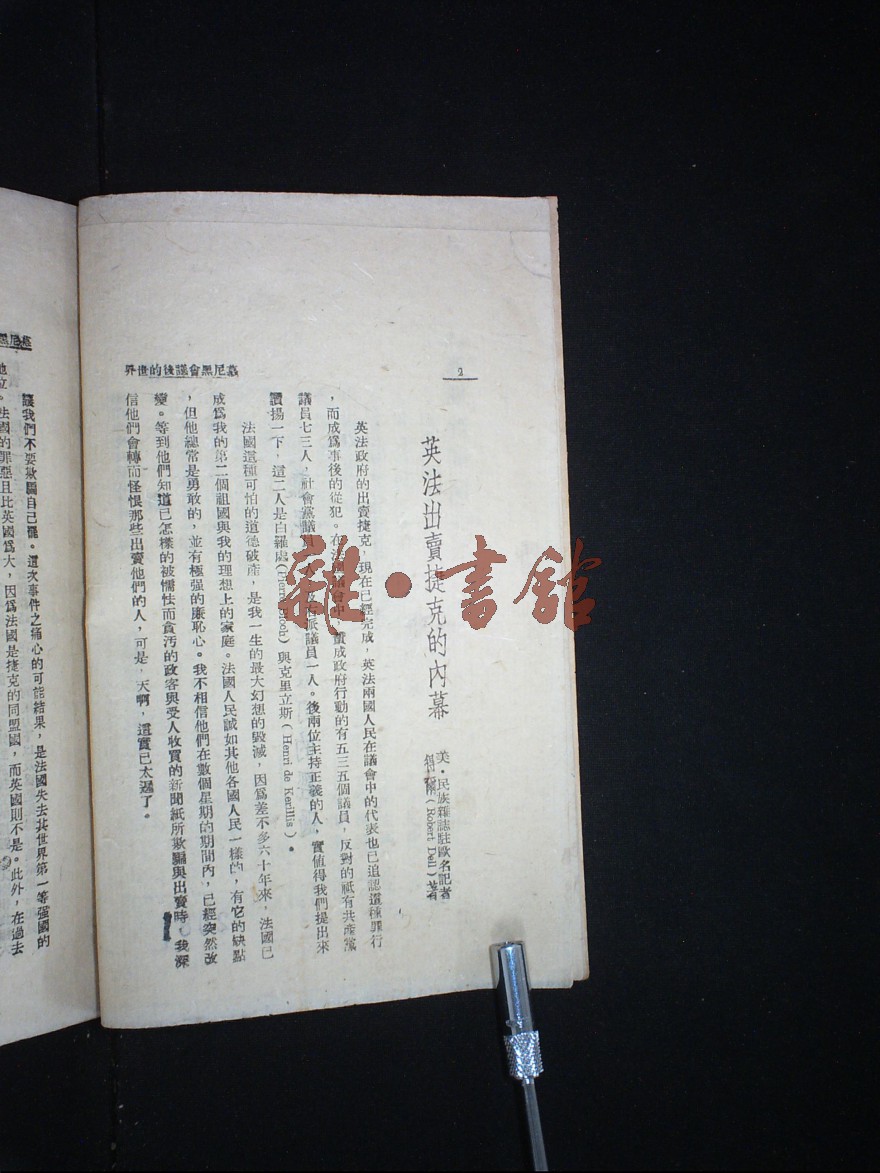 2
慕尼黑會議後的世界
英法出賣捷克的內幕
美·民族雜誌駐歐名記者
(Robert Dell)著
英法政府的出賣捷克,現在已經完成,英法兩國人民在議會中的代表也已追認這種罪行
,而成爲事後的從犯。在法國議會中,贊成政府行動的有五三五個議員,反對的祇有共產黨
議員七三人,社會黨議員一人,及右派議員一人。後兩位主持正義的人,實值得我們提出來
讚揚一下,這二人是白羅與克里立斯(Henri de Kerillis)。
法國這種可怕的道德破產,是我一生的最大幻想的毀滅,因爲差不多六十年來,法國已
成爲我的第二個祖國與我的理想上的家庭。法國人民誠如其他各國人民一樣的,有它的缺點
,但他總常是勇敢的,並有極强的廉恥心。我不相信他們在數個星期的期間內,已經突然改
變。等到他們知道已怎樣的被懦怯而貪汚的政客與受人收買的新聞紙所欺騙與出賣時,我深
信他們會轉而怪恨那些出賣他們的人,可是,天啊,這實已太遲了。
讓我們不要欺騙自己罷。這次事件之痛心的可能結果,是法國失去其世界第一等强國的
地位。法國的罪惡且比英國爲大,因爲法國是捷克的同盟國,而英國則不是。此外,在過去
雜·書館